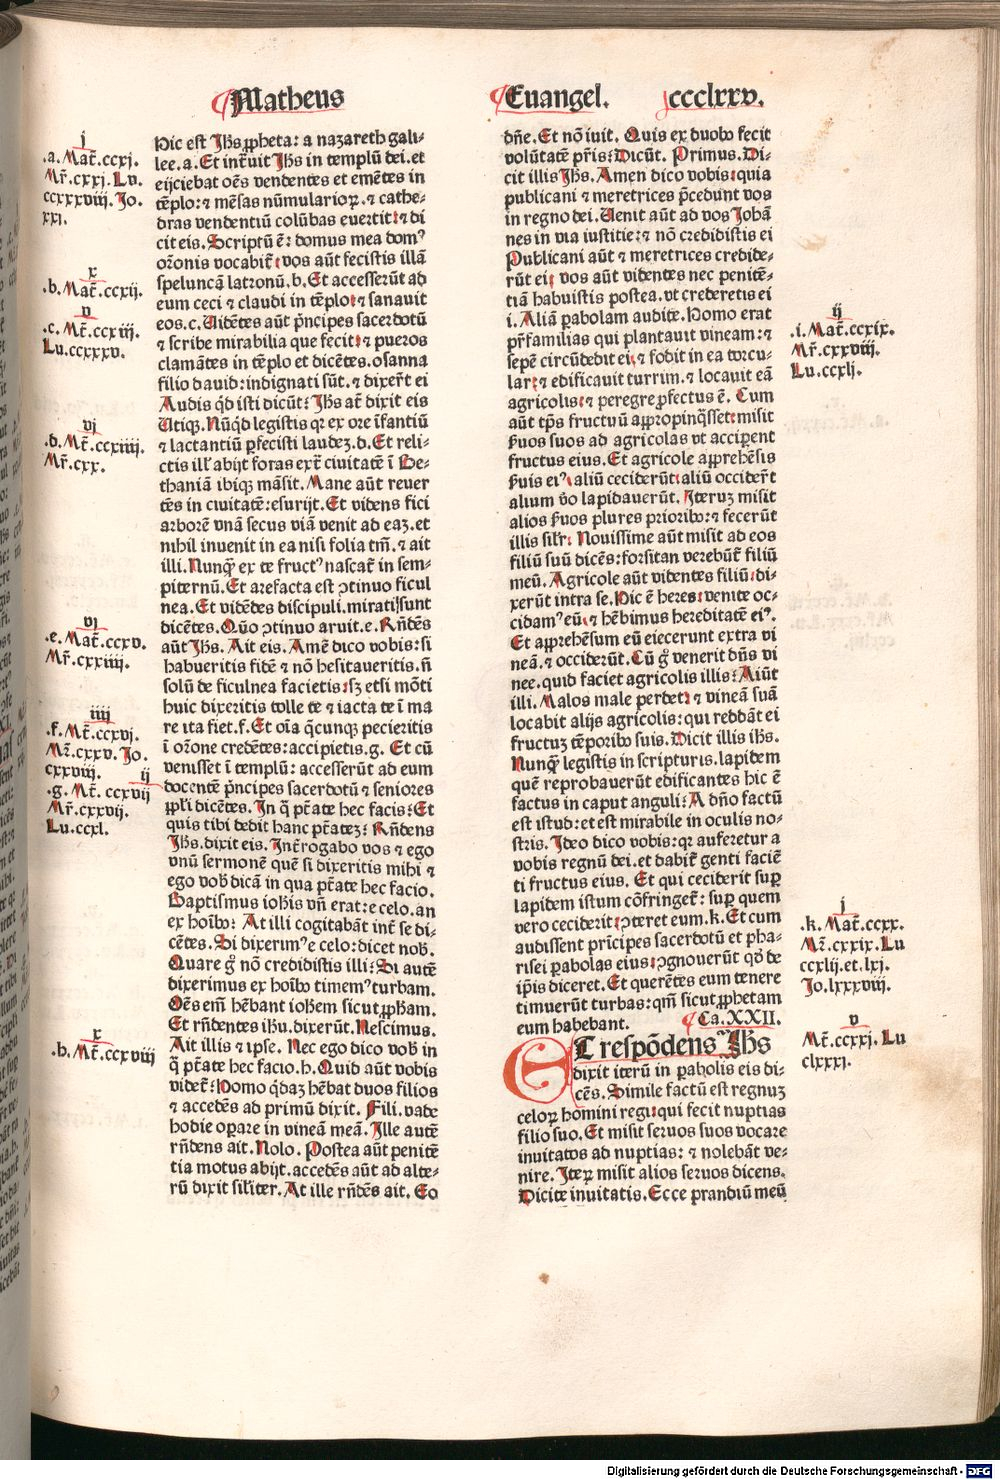 Matheus
Euangel.
ccclxxv.
j
.a. Mat̄.ccxj.
Mr̄.cxxj. Lu.
ccxxxviij. Jo.
xxj.
x
.b. Mat̄.ccxij.
v
.c. Mt̄.ccxiij.
Lu.ccxxxv.
vj
.d. Mt̄.ccxiiij.
Mr̄.cxx.
vj
.e. Mat̄.ccxv.
Mr̄.cxxiiij.
iiij
.f. Mt̄.ccxvj.
Mr̄.cxxv. Jo.
cxxviij.
ij
.g. Mt̄. ccxvij
Mr̄.cxxvij.
Lu.ccxl.
x
.h. Mt̄.ccxviij
Hic est Jh̄s ꝓpheta: a nazareth gali-
lee.a. Et int̄uit Jh̄s in templū dei.et
eijciebat oēs vendentes et emētes in
tēplo: ⁊ mēsas nūmularioꝝ. ⁊ cathe-
dras vendentiū colūbas euertit: ⁊ di
cit eis. Scriptū ē: domus mea domꝰ
or̄onis vocabit̄: vos aūt fecistis illā
speluncā latronū.b. Et accesserūt ad
eum ceci ⁊ claudi in tēplo: ⁊ sanauit
eos.c. Uidētes aūt p̄ncipes sacerdotū
⁊ scribe mirabilia que fecit: ⁊ pueros
clamātes in tēplo et dicētes.osanna
filio dauid: indignati sūt. ⁊ dixer̄t ei
Audis qd̄ isti dicūt: Jh̄s at̄ dixit eis
Utiqꝫ. Nūqd̄ legistis qꝛ ex ore īfantiū
⁊ lactantiū ꝑfecisti laudeꝫ.d. Et reli-
ctis ill̓ abijt foras ext̄ ciuitatē ī Be-
thaniā ibiqꝫ māsit. Mane aūt reuer
tēs in ciuitatē: esurijt. Et videns fici
arborē vnā secus viā venit ad eaꝫ.et
nihil inuenit in ea nisi folia tm̄. ⁊ ait
illi. Nunqꝫ ex te fructꝰ nascat̄ in sem-
piternū. Et arefacta est ꝯtinuo ficul
nea. Et vidētes discipuli.mirati sunt
dicētes. Quō ꝯtinuo aruit.e. Rn̄dēs
aūt Jh̄s. Ait eis. Amē dico vobis: si
habueritis fidē ⁊ nō hesitaueritis. n̄
solū de ficulnea facietis: sꝫ etsi mōti
huic dixeritis tolle te ⁊ iacta te ī ma
re ita fiet.f. Et oīa q̄cunqꝫ pecieritis
ī or̄one credētes: accipietis.g. Et cū
venisset ī templū: accesserūt ad eum
docentē p̄ncipes sacerdotū ⁊ seniores
pp̄li dicētes. In q̄ pt̄ate hec facis: Et
quis tibi dedit hanc pt̄ateꝫ: Rn̄dens
Jh̄s. dixit eis. Int̄rogabo vos ⁊ ego
vnū sermonē quē si dixeritis mihi ⁊
ego vob̄ dicā in qua pt̄ate hec facio.
Baptismus ioh̄is vn̄ erat: e celo.an
ex hoīb: At illi cogitabāt int̄ se di-
cētes. Si dixerimꝰ e celo: dicet nob̄.
Quare g̊ nō credidistis illi: Si autē
dixerimus ex hoīb timemꝰ turbam.
Oēs em̄ hēbant ioh̄em sicut ꝓph̄am.
Et rn̄dentes ih̄u.dixerūt. Nescimus.
Ait illis ⁊ ipse. Nec ego dico vob̄ in
q̄ pt̄ate hec facio.h. Quid aūt vobis
videt̄: Homo q̄daꝫ hēbat duos filios
⁊ accedēs ad primū dixit. Fili. vade
hodie oꝑare in vineā meā. Ille autē
rn̄dens ait. Nolo. Postea aūt penitē
tia motus abijt. accedēs aūt ad alte-
rū dixit sil̓iter. At ille rn̄dēs ait. Eo
dn̄e. Et nō iuit. Quis ex duob fecit
volūtatē pr̄is: Dicūt. Primus. Di-
cit illis Jh̄s. Amen dico vobis: quia
publicani ⁊ meretrices p̄cedunt vos
in regno dei. Uenit aūt ad vos Johā
nes in via iustitie: ⁊ nō credidistis ei
Publicani aūt ⁊ meretrices credide-
rūt ei: vos aūt videntes nec penitē-
tiā habuistis postea.vt crederetis ei
i. Aliā ꝑabolam audite. Homo erat
pr̄familias qui plantauit vineam: ⁊
sepē circūdedit ei: ⁊ fodit in ea torcu-
lar: ⁊ edificauit turrim. ⁊ locauit eā
agricolis: ⁊ peregre profectus ē. Cum
aūt tp̄s fructuū appropinq̄sset: misit
ẜuos suos ad agricolas vt acciꝑent
fructus eius. Et agricole appꝛehēsis
ẜuis eiꝰ: aliū ceciderūt: aliū occider̄t
alium v̊o lapidauerūt. Iteruꝫ misit
alios ẜuos plures prioribꝰ: ⁊ fecerūt
illis sil̓r: Nouissime aūt misit ad eos
filiū suū dicēs: forsitan verebūt̄ filiū
meū. Agricole aūt videntes filiū: di-
xerūt intra se. Hic ē heres: venite oc-
cidamꝰ eū: ⁊ hēbimus hereditatē eiꝰ.
Et appꝛehēsum eū eiecerunt extra vi
neā. ⁊ occiderūt. Cū g̊ venerit dn̄s vi
nee.quid faciet agricolis illis: Aiūt
illi. Malos male perdet: ⁊ vineā suā
locabit alijs agricolis: qui reddāt ei
fructuꝫ tēporib suis. Dicit illis ih̄s.
Nunqꝫ legistis in scripturis.lapidem
quē reprobauerūt edificantes hic ē
factus in caput anguli: A dn̄o factū
est istud: et est mirabile in oculis no-
stris. Ideo dico vobis: qꝛ auferetur a
vobis regnū dei.et dabit̄ genti faciē
ti fructus eius. Et qui ceciderit suꝑ
lapidem istum cōfringet̄: suꝑ quem
vero ceciderit: ꝯteret eum.k. Et cum
audissent prīcipes sacerdotū et pha-
risei ꝑabolas eius: ꝯgnouerūt qd̓ de
ip̄is diceret. Et querētes eum tenere
timuerūt turbas: qm̄ sicut ꝓphetam
eum habebant.
Ca.XXII.
Et respōdens Jh̄s
dixit iterū in ꝑabolis eis di-
cēs. Simile factū est regnuꝫ
celoꝝ homini regi: qui fecit nuptias
filio suo. Et misit seruos suos vocare
inuitatos ad nuptias: ⁊ nolebāt ve-
nire. Iteꝝ misit alios seruos dicens.
Dicite inuitatis. Ecce prandiū meū
ij
.i. Mat̄.ccxix.
Mr̄.cxxviij.
Lu.ccxlj.
j
.k. Mat̄.ccxx.
Mr̄.cxxix. Lu
ccxlij.et.lxj.
Jo.lxxxviij.
v
Mt̄.ccxxj. Lu
clxxxj.
Digitalisierung gefördert durch die Deutsche Forschungsgemeinschaft - DFG